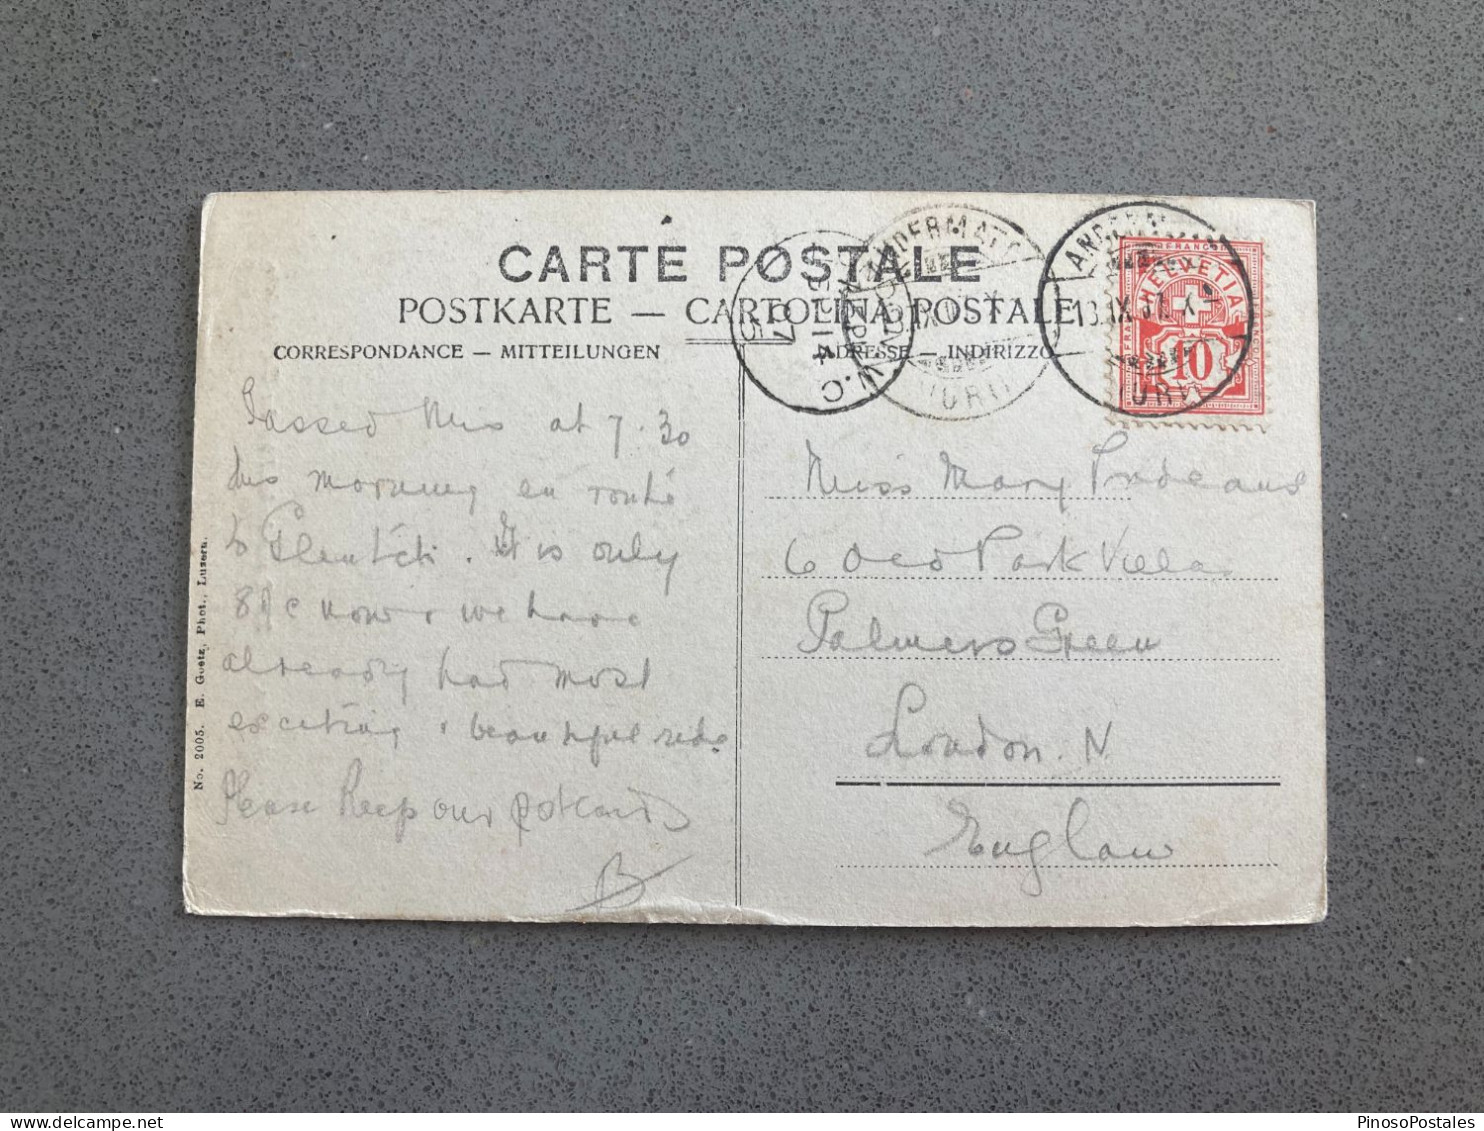 CARTE POSTALE
POSTKARTE — CARTOLINA POSTALE
CORRESPONDANCE — MITTEILUNGEN
ADRESSE — INDIRIZZO
ANDERMATT
URI
ANDERMATT
13.IX.07.X
URI
HELVETIA
FRANCO
10
W.C
SP 14
07
5
Passed this at 7.30
this morning en route
to Gletsch. It is only
8 o'c now & we have
already had most
exciting & beautiful ride
Please keep our postcards
B
Miss Mary Prideaux
6 Park Villas
Palmers Green
London. N
England
No. 2005. E. Goetz, Phot., Luzern.
PinosoPostales